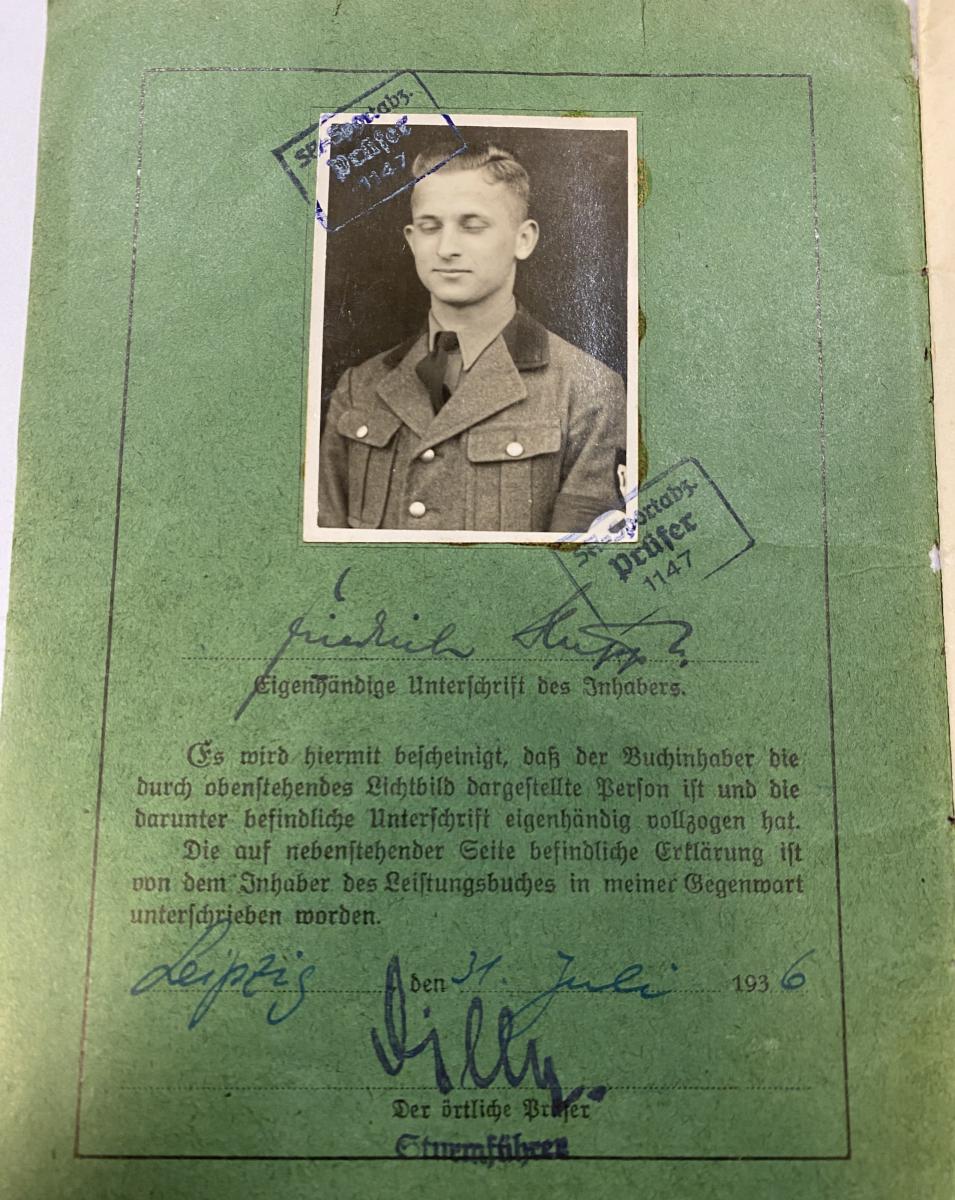 SA-Sportabz.
Prüfer
1147
SA-Sportabz.
Prüfer
1147
Friedrich
Eigenhändige Unterschrift des Inhabers.
Es wird hiermit bescheinigt, daß der Buchinhaber die
durch obenstehendes Lichtbild dargestellte Person ist und die
darunter befindliche Unterschrift eigenhändig vollzogen hat.
Die auf nebenstehender Seite befindliche Erklärung ist
von dem Inhaber des Leistungsbuches in meiner Gegenwart
unterschrieben worden.
Leipzig, den 31. Juli 1936
Der örtliche Prüfer
Sturmführer